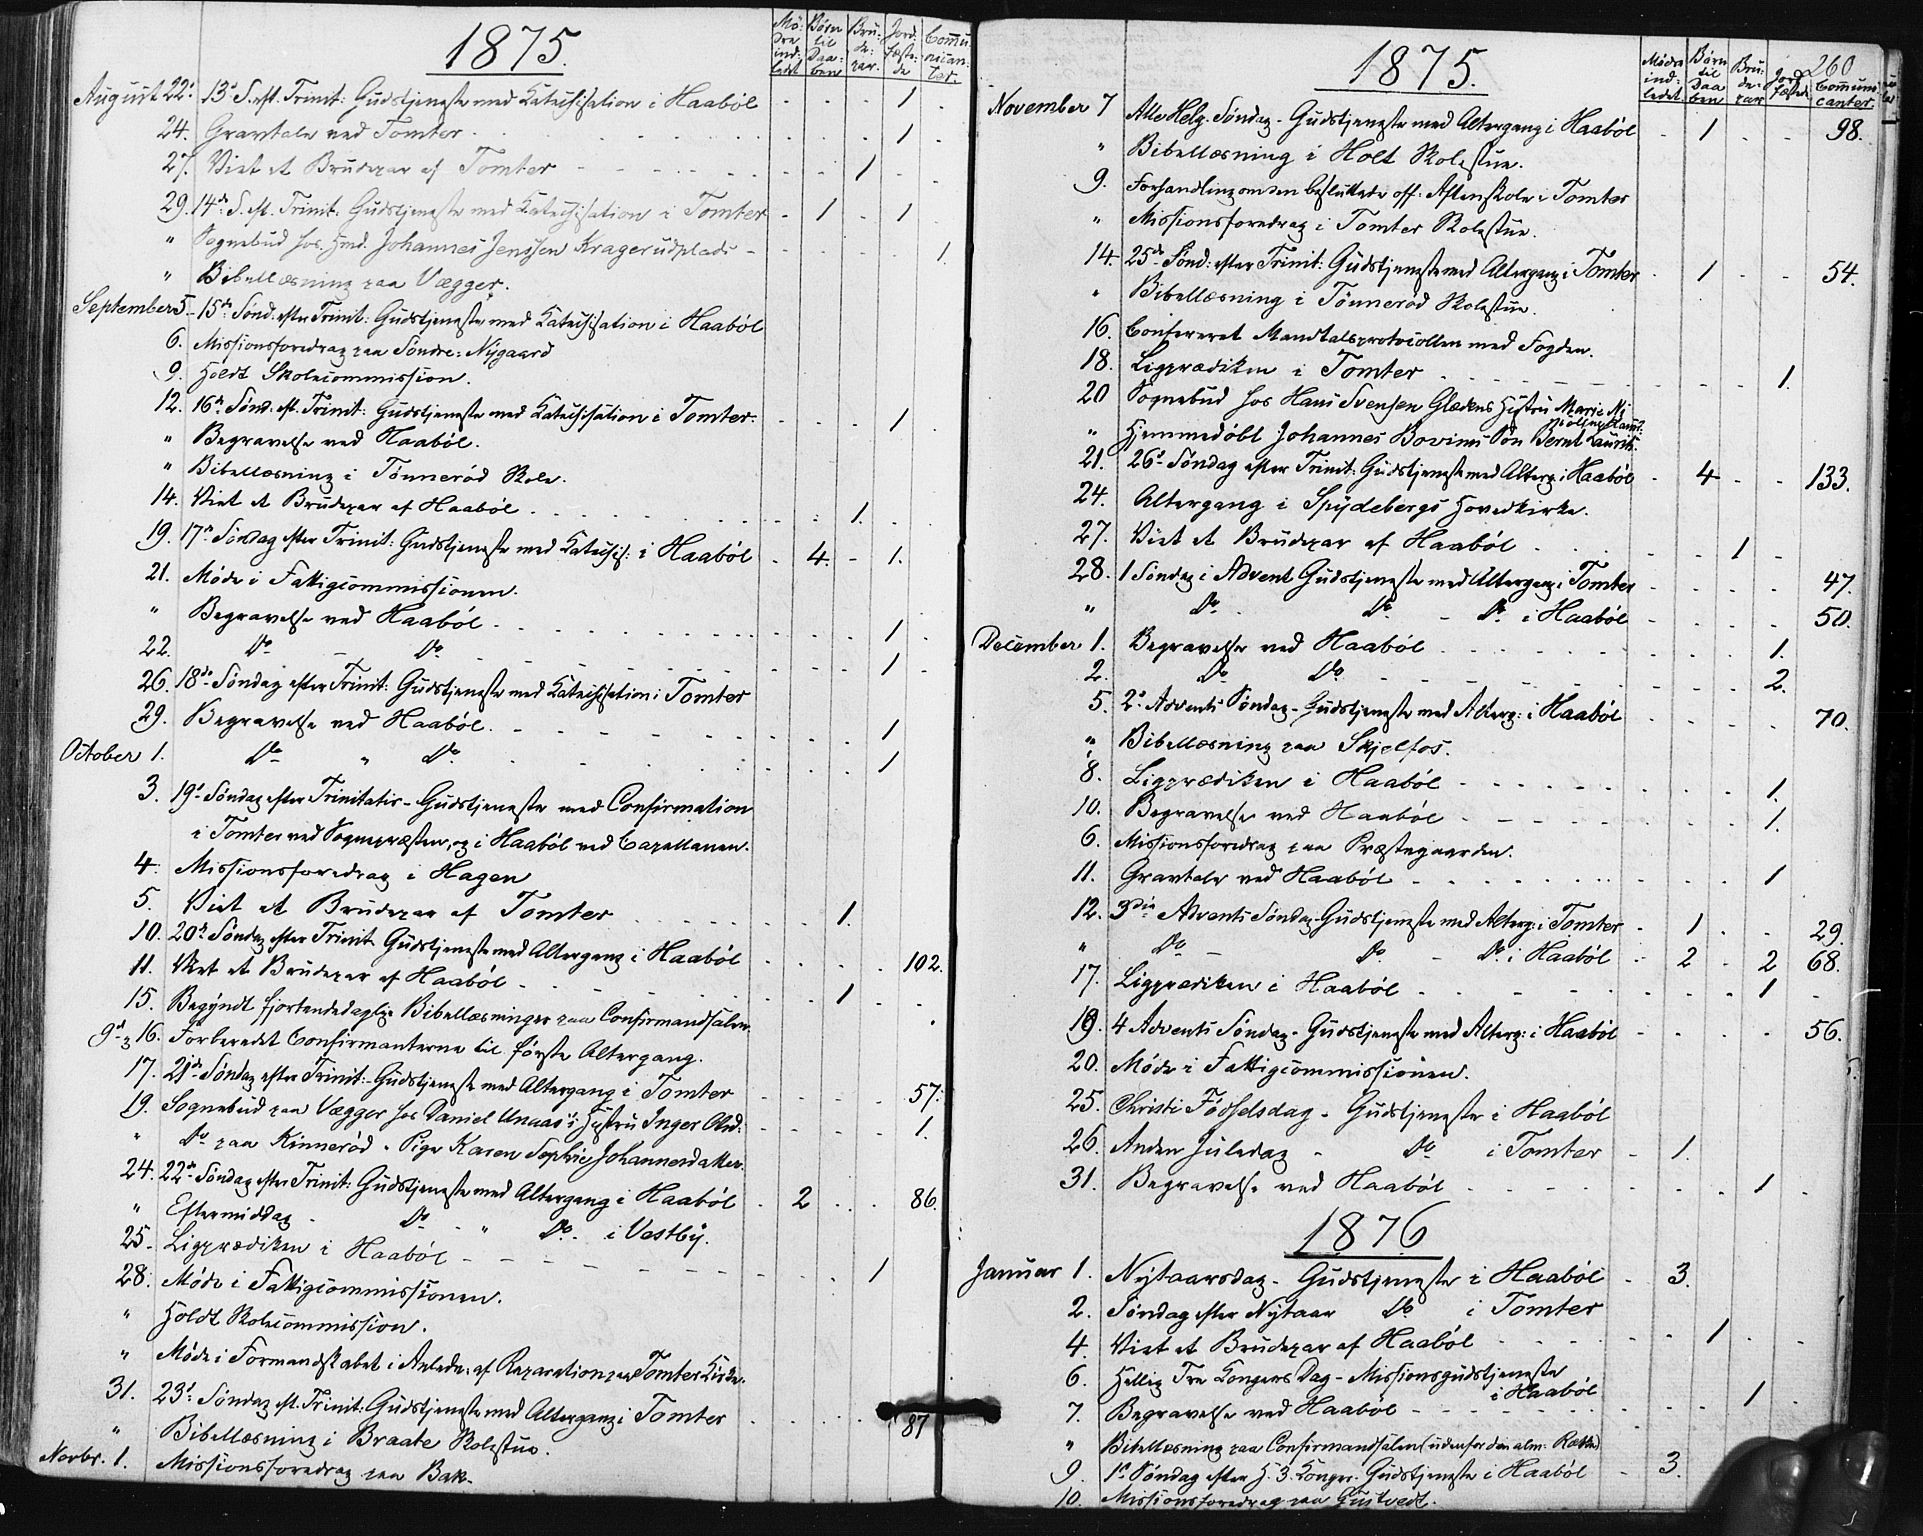 1875.
Mø- dre ind: ledet | Børn til Daa- ben | Bru- de- par. | Jord- fæste- de | Commu- nican- ter.
August 22. 13de S. eft. Trinit: Gudstjeneste med Katechisation i Haabøl - - - 1 -
24. Gravtale ved Tomter - - - 1 -
27. Viet et Brudepar af Tomter - - 1 - -
29. 14de S. eft. Trinit: Gudstjeneste med Katechisation i Tomter - 1 - 1 -
" Sognebud hos Hmd. Johannes Jenssen Kragerudplads - - - - 1.
" Bibellæsning paa Vægger.
September 5. 15de Sønd. efter Trinit: Gudstjeneste med Katechisation i Haabøl
6. Missionsforedrag paa Søndre: Nygaard
9. Holdt Skolecommission.
12. 16de Sønd. eft. Trinit: Gudstjeneste med Katechisation i Tomter. - - - 1 -
" Begravelse ved Haabøl.
" Bibellæsning i Tønnerød Skole.
14. Viet et Brudepar af Haabøl - - 1. - -
19. 17de Søndag efter Trinit: Gudstjeneste med Katechis: i Haabøl - 4. - 1.
21. Møde i Fattigcommissionen.
" Begravelse ved Haabøl - - - 1 -
22. Do - Do - - - 1 -
26. 18de Søndag efter Trinit: Gudstjeneste med Katechisation i Tomter
29. Begravelse ved Haabøl. - - - 1
October 1. Do " Do - - - 1
3. 19de Søndag efter Trinitatis - Gudstjeneste med Confirmation
i Tomter ved Sognepræsten, og i Haabøl ved Capellanen.
4. Missionsforedrag i Hagen
5. Viet et Brudepar af Tomter - - 1.
10. 20de Søndag efter Trinit. Gudstjeneste med Altergang i Haabøl - - - - 102.
11. Viet et Brudepar af Haabøl - - 1 - -
15. Begyndt fjortendedaglige Bibellæsninger paa Confirmandsalen.
9de - 16. Forberedet Confirmanterne til første Altergang.
17. 21de Søndag efter Trinit: Gudstjeneste med Altergang i Tomter - - - - 57.
19. Sognebud paa Vægger hos Daniel Unaas's Hustru Inger Olsd: - - - - 1.
" Do paa Kinnerød - Pige Karen Sophie Johannesdatter.
24. 22de Søndag efter Trinit: Gudstjeneste med Altergang i Haabøl - 2 - - 86.
" Eftermiddag - Do - " Do. i Vestby.
25. Ligprædiken i Haabøl - - - 1
28. Møde i Fattigcommissionen.
" Holdt Skolecommission.
" Møde i Formandskabet i Anledn: af Reparation paa Tomter Kirke.
31. 23de Søndag eft. Trinit: Gudstjeneste med Altergang i Tomter - - - - 87
" Bibellæsning i Braate Skolestue.
Novbr. 1. Missionsforedrag paa Bak-
1875.
260
Mødre ind: ledet. | Børn til Daa ben | Bru- de- par | Jord fæstede | Communi canter.
November 7 Alle Helg. Søndag - Gudstjeneste med Altergang i Haabøl - 1 - - 98.
" Bibellæsning i Holt Skolestue.
9. Forhandling om den besluttede off: Aftenskole i Tomter
" Missionsforedrag i Tomter Skolestue.
14. 25de Sønd: efter Trinit: Gudstjeneste med Altergang i Tomter - 1 - - 54.
" Bibellæsning i Tønnerød Skolestue.
16. Confereret Mandtalsprotocollen med Fogden.
18. Ligprædiken i Tomter - - - 1.
20 Sognebud hos Hans Svensen Glædens Hustru Marie
" Hjemmedøbt Johannes Bovims Søn Bernt Laurits.
21. 26de Søndag efter Trinit: Gudstjeneste med Alterg: i Haabøl - 4 - - 133.
24. Altergang i Spydebergs Hovedkirke.
27. Viet et Brudepar af Haabøl - - 1 -
28. 1 Søndag i Advent Gudstjeneste med Altergang i Tomter - - - - 47.
" Do - Do - Do i Haabøl - - - - 50.
December 1. Begravelse ved Haabøl - - - 1.
2. Do Do - - - 2.
5. 2de Advents Søndag - Gudstjeneste med Alterg: i Haabøl - - - - 70.
" Bibellæsning paa Skjelfos.
8. Ligprædiken i Haabøl - - - 1.
10. Begravelse ved Haabøl - - - 1.
6. Missionsforedrag paa Præstegaarden.
11. Gravtale ved Haabøl - - - 1
12. 3die Advents Søndag Gudstjeneste med Alterg: i Tomter - 1 - - 29.
" Do - Do - Do. i Haabøl - 2 - 2 68.
17. Ligprædiken i Haabøl - - - 1 -
19. 4 Advents Søndag - Gudstjeneste med Alterg: i Haabøl - - - - 56.
20. Møde i Fattigcommissionen.
25. Christi Fødselsdag - Gudstjeneste i Haabøl
26. Anden Juledag - Do i Tomter - 1.
31. Begravelse ved Haabøl - - - 1 -
1876
Januar 1. Nytaarsdag - Gudstjeneste i Haabøl - 3.
2. Søndag efter Nytaar Do i Tomter
4. Viet et Brudepar af Haabøl - - 1 - -
6. Hellig Tre Kongers Dag - Missionsgudstjeneste
i Haabøl
7. Begravelse ved Haabøl - - - 1
" Bibellæsning paa Confirmandsalen (udenfor den alm: Række)
9. 1ste Søndag efter H. 3. Konger. Gudstjeneste i Haabøl - 3.
10. Missionsforedrag paa Gustvedt.